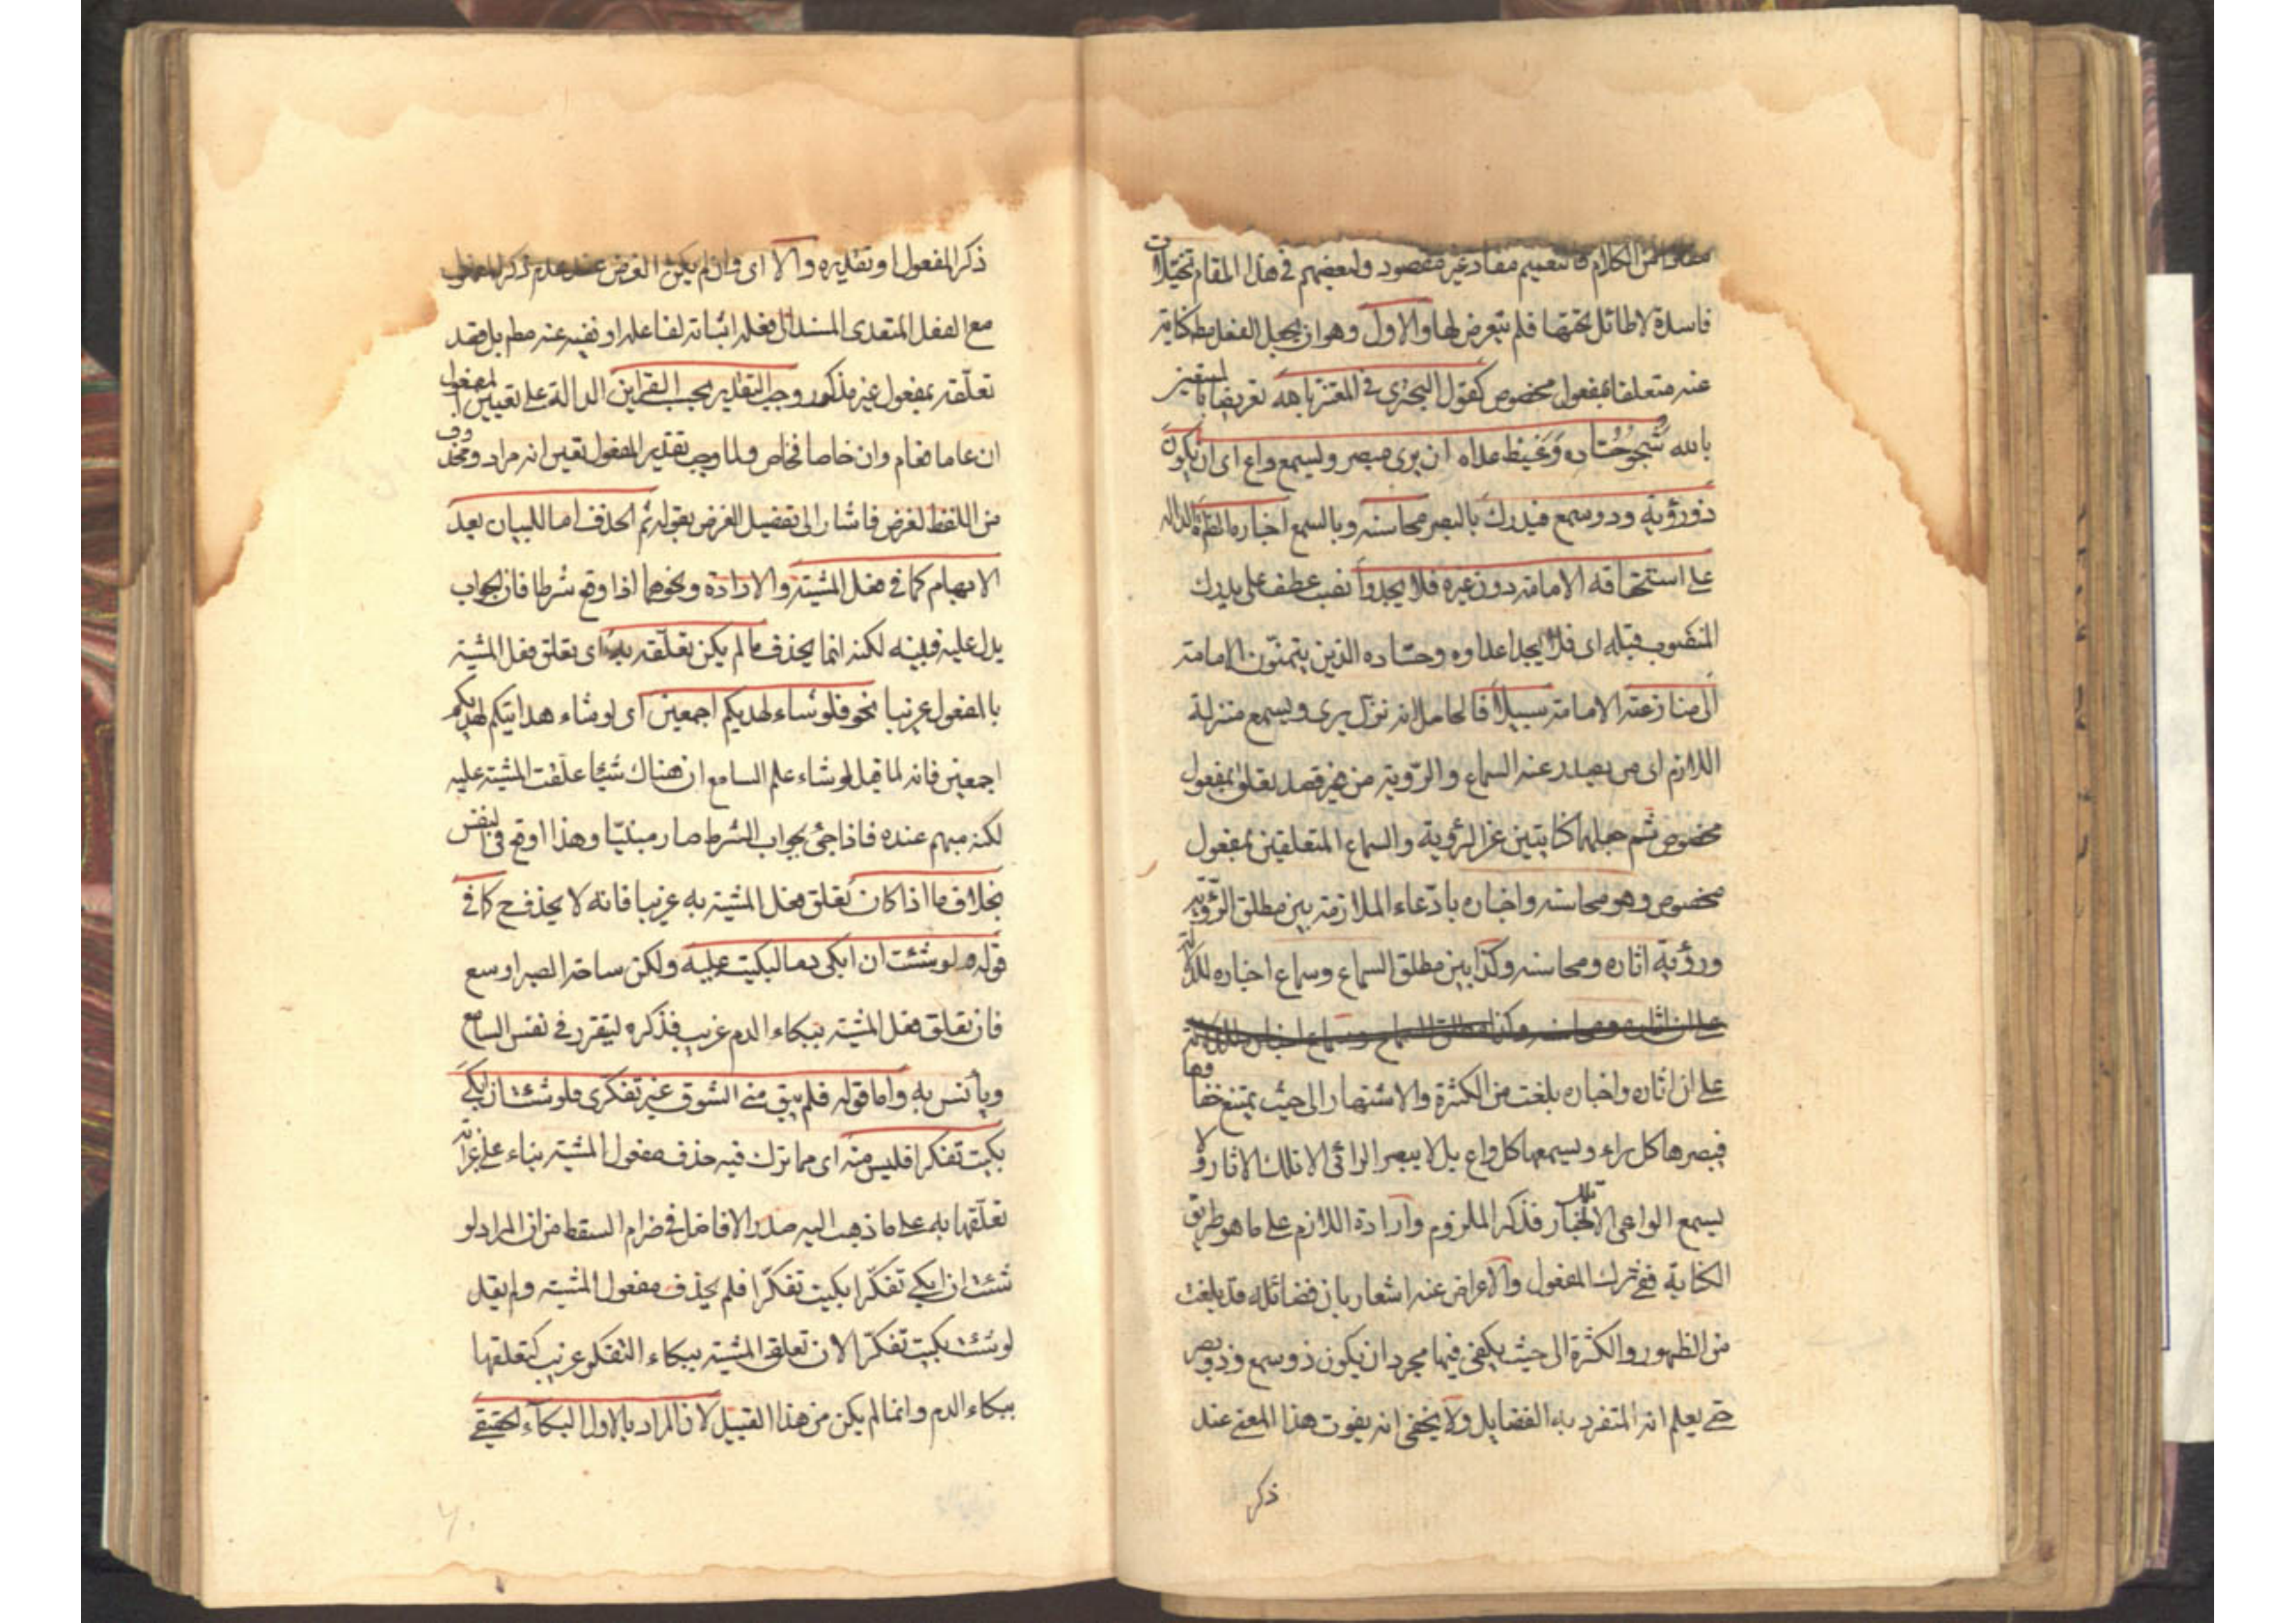 من الكلام فالتعميم مفاد غير مقصود ولبعضهم في هذا المقام تخيلات
فاسدة لا طائل تحتها فلم نتعرض لها والاول وهو ان يجعل الفعل مطم كناية
عنه متعلقا بمفعول مخصوص كقول البحتري في المعتز بالله تعريضا بالمستعين
بالله شجو حساده وغيظ عداه ان يرى مبصر ويسمع واع اى ان يكون
ذو رؤية وذو سمع فيدرك بالبصر محاسنه وبالسمع اخباره الظاهرة الدالة
على استحقاقه الامامة دون غيره فلا يجدوا نصب عطف على يدرك
المنصوب قبله اى فلا يجد اعداوه وحساده الذين يتمنون الامامة
الى منازعته الامامة سبيلا فالحاصل انه نزل يرى ويسمع منزلة
اللازم اى من يصدر عنه السماع والرؤية من غير قصد تعلق بمفعول
مخصوص ثم جعلهما كنايتين عن الرؤية والسماع المتعلقين بمفعول
مخصوص وهو محاسنه واخباره بادعاء الملازمة بين مطلق الرؤية
ورؤية اثاره ومحاسنه وكذا بين مطلق السماع وسماع اخباره للدلالة
على ان اثاره واخباره بلغت من الكثرة والاشتهار الى حيث يمتنع خفاؤها
فيبصرها كل راء ويسمعها كل واع بل لا يبصر الرائى الا تلك الاثار ولا
يسمع الواعى الا تلك الاخبار فذكر الملزوم واراد اللازم على ما هو طريق
الكناية ففى ترك المفعول والاعراض عنه اشعار بان فضائله قد بلغت
من الظهور والكثرة الى حيث يكفى فيها مجرد ان يكون ذو سمع وذو بصر
حتى يعلم انه المتفرد بالفضايل ولا يخفى انه يفوت هذا المعنى عند
ذكر
ذكر المفعول او تقديره والا اى وان لم يكن الغرض عند عدم ذكر المفعول
مع الفعل المتعدى المسند الى فاعله اثباته لفاعله او نفيه عنه مطم بل قصد
تعلقه بمفعول غير مذكور وجب التقدير بحسب القراين الدالة على تعيين المفعول
ان عاما فعام وان خاصا فخاص ولما وجب تقدير المفعول تعين انه مراد ومحذوف
من اللفظ لغرض فاشار الى تفصيل الغرض بقوله ثم الحذف اما للبيان بعد
الابهام كما في فعل المشية والارادة ونحوهما اذا وقع شرطا فان الجواب
يدل عليه ويبينه لكنه انما يحذف ما لم يكن تعلقه به اى تعلق فعل المشية
بالمفعول غريبا نحو فلو شاء لهديكم اجمعين اى لو شاء هدايتكم لهديكم
اجمعين فانه لما قيل لو شاء علم السامع ان هناك شيئا علقت المشية عليه
لكنه مبهم عنده فاذا جئ بجواب الشرط صار مبينا وهذا اوقع في النفس
بخلاف ما اذا كان تعلق فعل المشية به غريبا فانه لا يحذف ح كما في
قوله ولو شئت ان ابكى دما لبكيت عليه ولكن ساحة الصبر اوسع
فان تعلق فعل المشية ببكاء الدم غريب فذكره ليتقرر في نفس السامع
ويأنس به واما قوله فلم يبق منى الشوق غير تفكرى فلو شئت ان ابكى
بكيت تفكرا فليس منه اى مما ترك فيه حذف مفعول المشية بناء على غرابة
تعلقها به على ما ذهب اليه صدر الافاضل في ضرام السقط من ان المراد لو
شئت ان ابكى تفكرا بكيت تفكرا فلم يحذف مفعول المشية ولم يقل
لو شئت بكيت تفكرا لان تعلق المشية ببكاء التفكر غريب كتعلقها
ببكاء الدم وانما لم يكن من هذا القبيل لان المراد بالاول البكاء الحقيقى